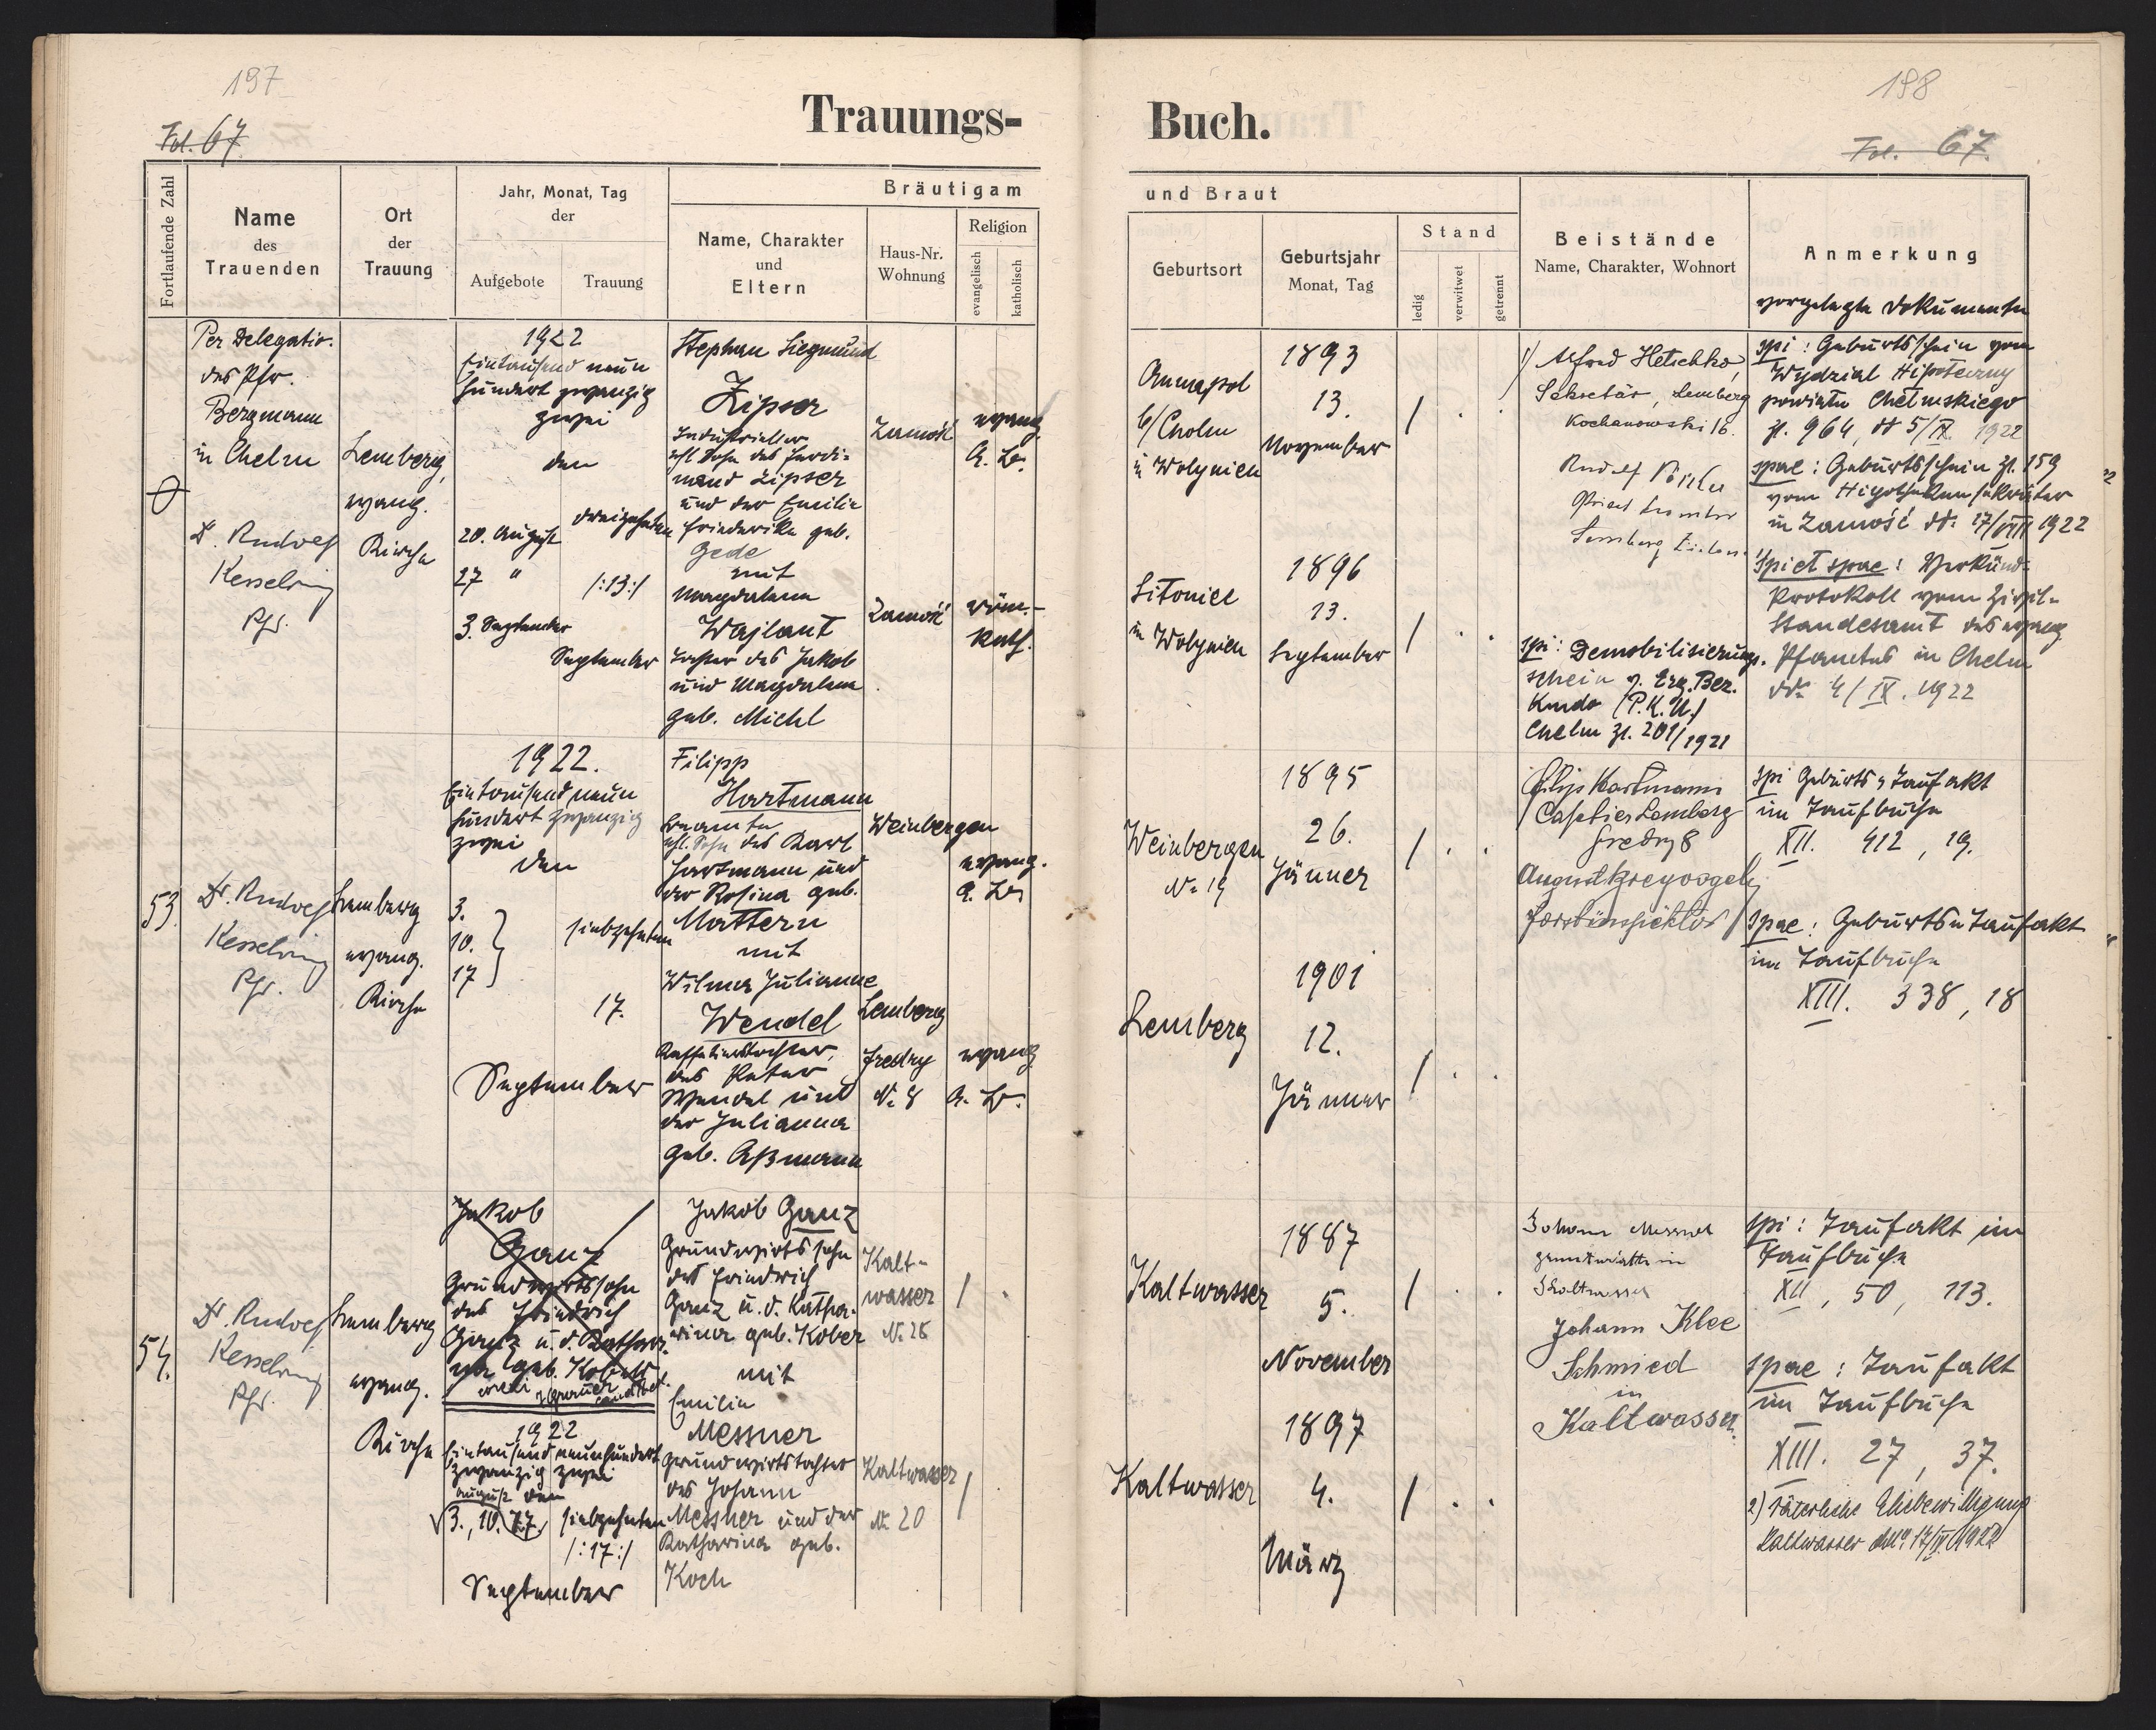 197
198
Trauungs-
Buch.
Fol. 67
Fol. 67.
Fortlaufende Zahl
Name
des
Trauenden
Ort
der
Trauung
Jahr, Monat, Tag
der
Aufgebote
Trauung
Bräutigam
Name, Charakter
und
Eltern
Haus-Nr.
Wohnung
Religion
evangelisch
katholisch
und Braut
Geburtsort
Geburtsjahr
Monat, Tag
Stand
ledig
verwitwet
getrennt
Beistände
Name, Charakter, Wohnort
Anmerkung
vorgelegte Dokumente
Per Delegatio.
des Pfr.
Bergmann
in Chelm
Dr. Rudolf
Kesselring
Pfr.
Lemberg,
evang.
Kirche
1922
Eintausend neun
hundert zwanzig
zwei
den
20. August
27 "
3. September
dreizehnten
/:13:/
September
Stephan Siegmund
Zipser
Industrieller
ehl. Sohn des Ferdi=
nand Zipser
und der Emilie
Friederike geb.
Gede
mit
Magdalena
Wajlant
Tochter des Jakob
und Magdalena
geb. Michl
Zamość
Zamość
evang.
A. B.
röm.-
kath.
Annapol
b/Cholm
in Wolynien
1893
13.
November
/ . .
Sitoniec
in Wolynien
1896
13.
September
/ . .
1/ Alfred Hetschko,
Sekretär, Lemberg
Kochanowski 16.
Rudolf
Lemberg
spi: Demobilisierungs-
schein v. Erg. Bez.
Kmdo (P.K.U.)
Chelm Zl. 201/1921
spi: Geburtsschein vom
Wydział Hipoteczny
powiatu Chełmskiego
Zl. 964, dt 5/IX. 1922
spae: Geburtsschein Zl. 159
vom Hypothekensekretär
in Zamość dt. 17/VIII 1922
spi et spae: Verkünd-
Protokoll vom Zivil-
Standesamt des evang.
Pfarramtes in Chelm
ddo 4/IX. 1922
53.
Dr. Rudolf
Kesselring
Pfr.
Lemberg
evang.
Kirche
1922.
Eintausend neun
hundert zwanzig
zwei
den
3.
10.
17
siebzehnten
17.
September
Filipp
Hartmann
Beamter
ehl. Sohn des Karl
Hartmann und
der Rosina geb.
Mattern
mit
Wilma Julianne
Wendel
Kaffetierstochter,
des Peter
Wendel und
der Julianna
geb. Aßmann
Weinbergen
Lemberg
Fredry
No 8
evang.
A. B.
evang.
A. B.
Weinbergen
No 19
1895
26.
Jänner
/ . .
Lemberg
1901
12.
Jänner
/ . .
Filip Hartmann
Cafetier Lemberg
Fredry 8
August
Forstinspektor
spi Geburts u Taufakt
im Taufbuche
XII. 412, 19.
spae: Geburts u Taufakt
im Taufbuche
XIII. 338, 18
54.
Dr. Rudolf
Kesselring
Pfr.
Lemberg
evang.
Kirche
Jakob
Ganz
Grundwirtssohn
des Friedrich
Ganz u. d. Katha-
rina geb. Kober
1922
Eintausend neunhundert
zwanzig zwei
August den
3., 10. 17.
siebzehnten
/:17:/
September
Jakob Ganz
Grundwirtssohn
des Friedrich
Ganz u. d. Katha-
rina geb. Kober
mit
Emilie
Messner
Grundwirtstochter
des Johann
Messner und der
Katharina geb.
Koch
Kalt-
wasser
No 28
/ .
Kaltwasser
No 20
/ .
Kaltwasser
1887
5.
November
/ . .
Kaltwasser
1897
4.
März
/ . .
Johann Messner
in
Johann Klee
Schmied
in
Kaltwasser.
spi: Taufakt im
Taufbuche
XII, 50, 113.
spae: Taufakt
im Taufbuche
XIII. 27, 37.
2) Väterliche Ehebewilligung
Kaltwasser